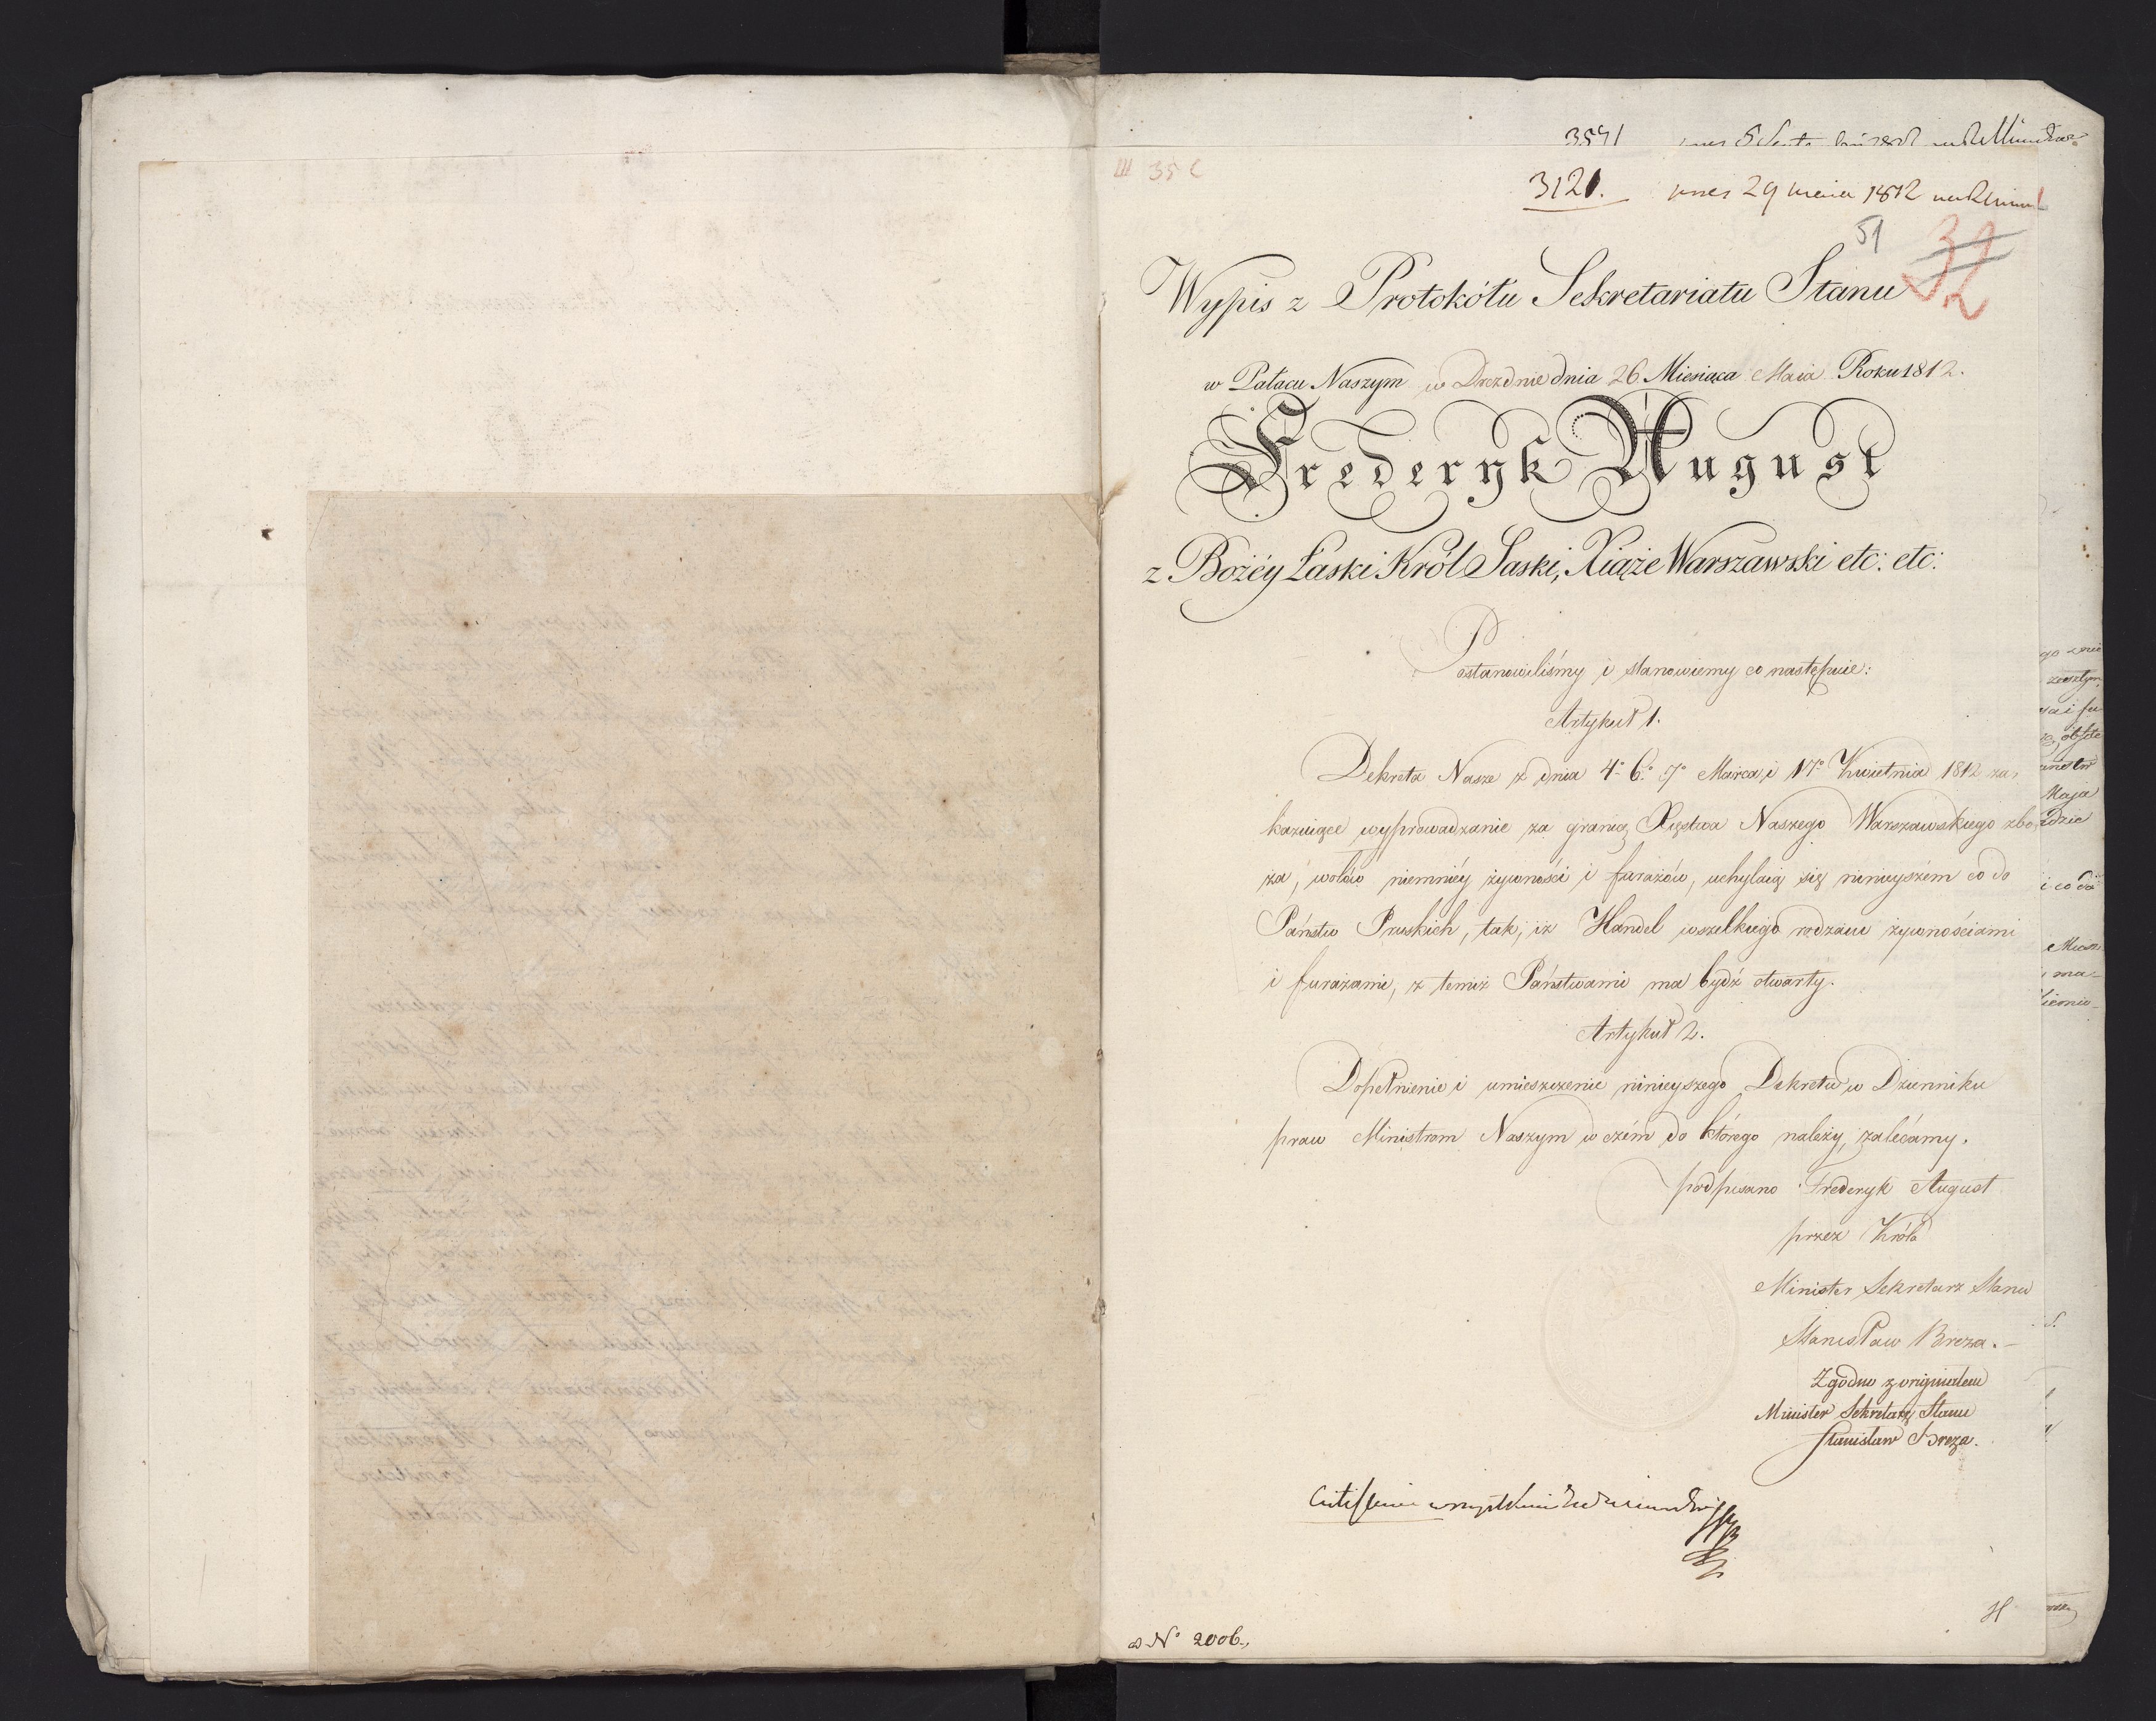 3541
III 35 c
3121. 29 maia 1812
51 32
Wypis z Protokółu Sekretariatu Stanu
w Pałacu Naszym w Dreźnie dnia 26 Miesiąca Maia Roku 1812.
Frederyk August
z Bożéy Łaski Król Saski, Xiąże Warszawski etc: etc:
Postanowiliśmy i stanowiemy co następuie:
Artykuł 1.
Dekreta Nasze z dnia 4º 6º 7º Marca, i 17º Kwietnia 1812 za,
kazuiące wyprowadzanie za granicę Xięstwa Naszego Warszawskiego zbo,
ża, wołów niemniéy żywności i furażów, uchylaią się ninieyszém co do
Państw Pruskich, tak, iż Handel wszelkiego rodzaiu żywnościami
i furażami, z temiż Państwami ma bydź otwarty.
Artykuł 2.
Dopełnienie i umieszczenie ninieyszego Dekretu w Dzienniku
praw Ministrom Naszym w czém do którego należy, zalécamy.
podpisano Frederyk August
przez Króla
Minister Sekretarz Stanu
Stanisław Breza.
Zgodno z originałem
Minister Sekretarz Stanu
Stanisław Breza.
Nº 2006.